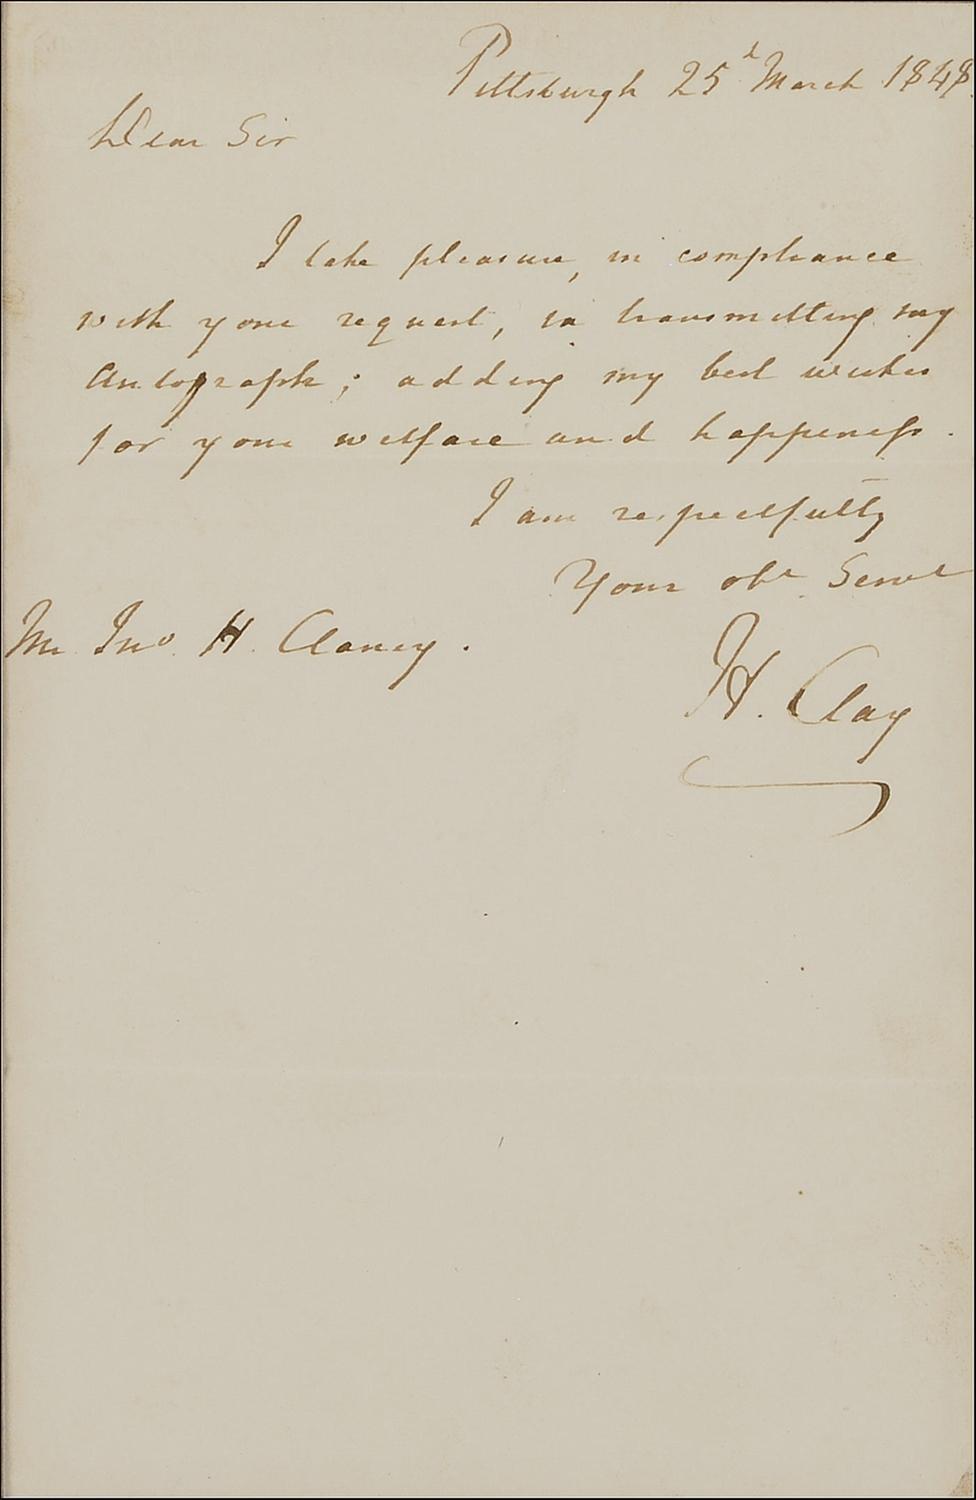 Pittsburgh 25th March 1848.
Dear Sir
I take pleasure, in compliance
with your request, in transmitting my
Autograph; adding my best wishes
for your welfare and happiness.
I am respectfully
Your obt. Servt
Mr. Jno. H. Clancy.
H. Clay